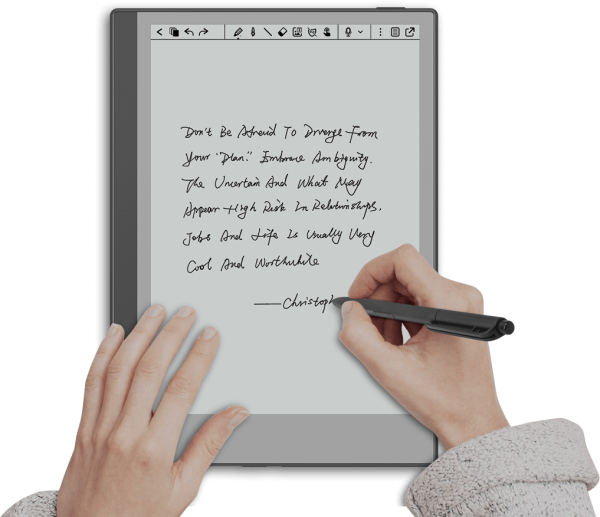 Don't Be Afraid To Diverge From
Your "Plan." Embrace Ambiguity.
The Uncertain And What May
Appear High Risk In Relationships,
Jobs And Life Is Usually Very
Cool And Worthwhile
——Christoph